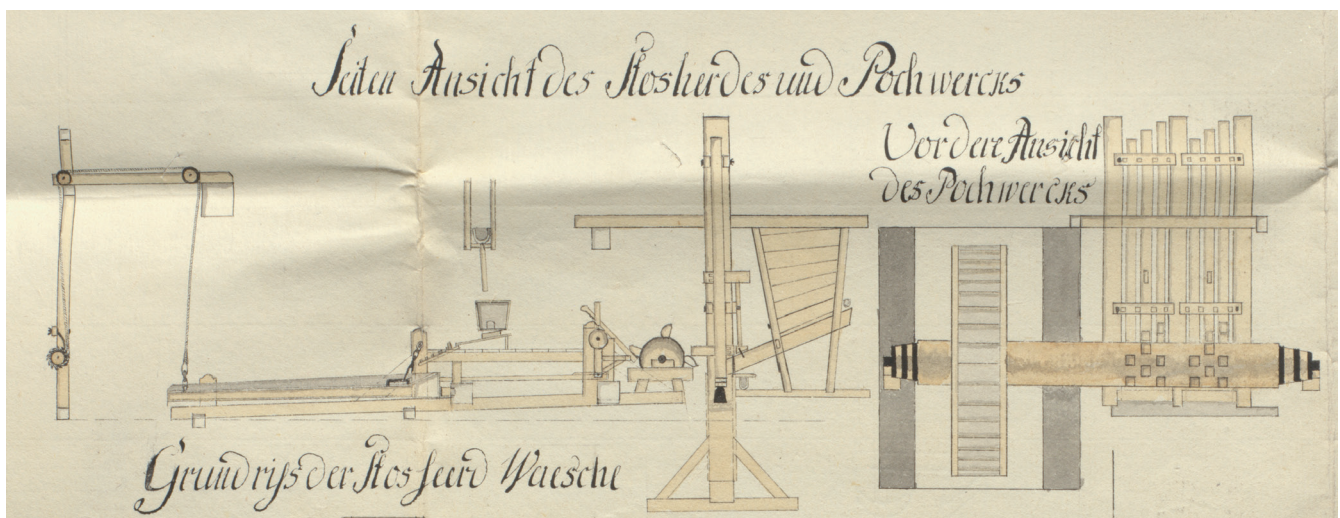 Seiten Ansicht des Stosherdes und Pochwercks
Vordere Ansicht
des Pochwercks
Grundriſs der Stos heerd Waesche